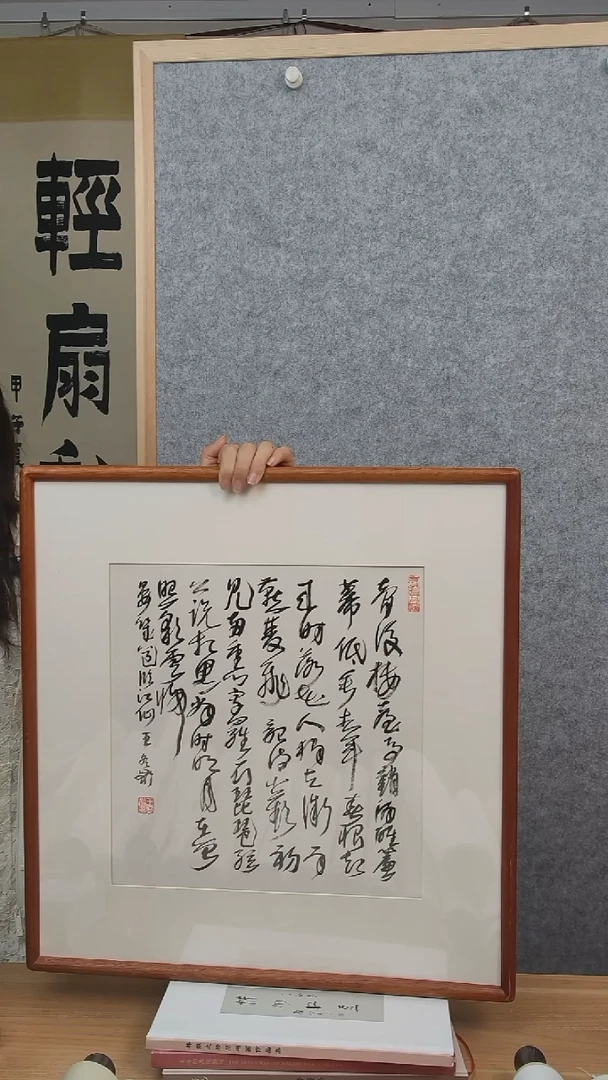 輕扇
甲午
夢後楼臺高鎖酒醒簾
幕低垂去年春恨却
来时落花人獨立微雨
燕雙飛記得小蘋初
見兩重心字羅衣琵琶弦
上说相思當时明月在曾
照彩雲歸
晏幾道臨江仙 王